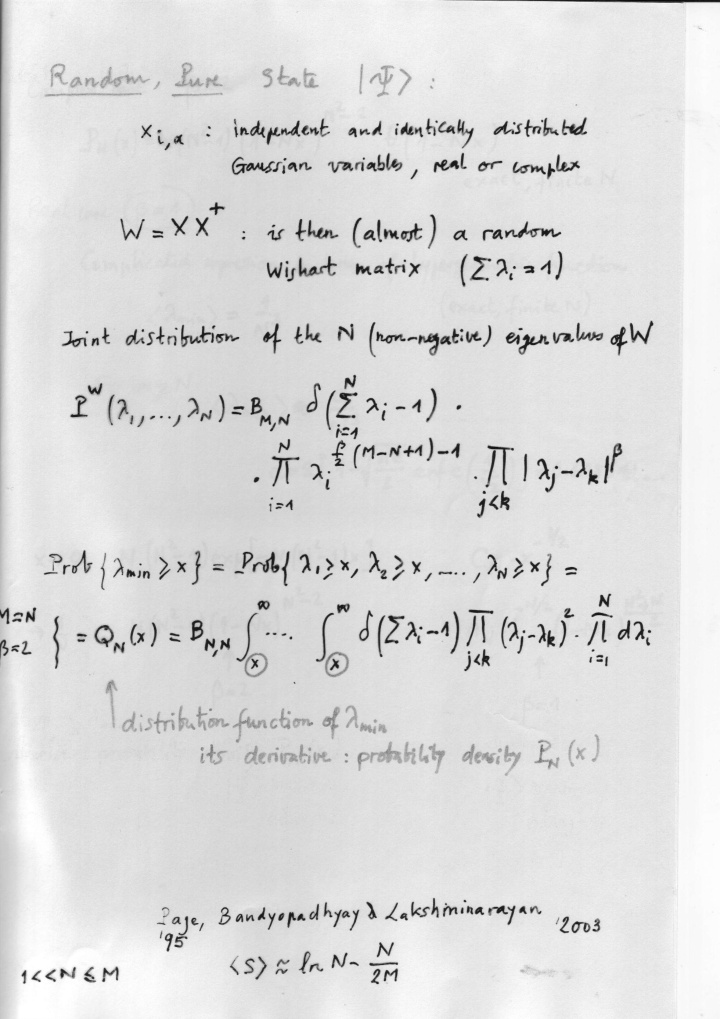 Random, Pure State |Ψ⟩ :
x_{i,α} : independent and identically distributed
Gaussian variables, real or complex
W = XX^+ : is then (almost) a random
Wishart matrix (Σ λ_i = 1)
Joint distribution of the N (non-negative) eigenvalues of W
P^W (λ_1, ..., λ_N) = B_{M,N} δ(Σ_{i=1}^N λ_i − 1) ·
· ∏_{i=1}^N λ_i^{β/2 (M−N+1)−1} · ∏_{j<k} |λ_j − λ_k|^β
Prob { λ_min ≥ x } = Prob { λ_1 ≥ x, λ_2 ≥ x, ...., λ_N ≥ x } =
M=N
β=2 } = Q_N(x) = B_{N,N} ∫_x^∞ .... ∫_x^∞ δ(Σ λ_i − 1) ∏_{j<k} (λ_j − λ_k)^2 · ∏_{i=1}^N dλ_i
↑ distribution function of λ_min
its derivative : probability density P_N(x)
Page, Bandyopadhyay & Lakshminarayan '2003
'95
⟨S⟩ ≈ ln N − N/2M
1<<N≤M